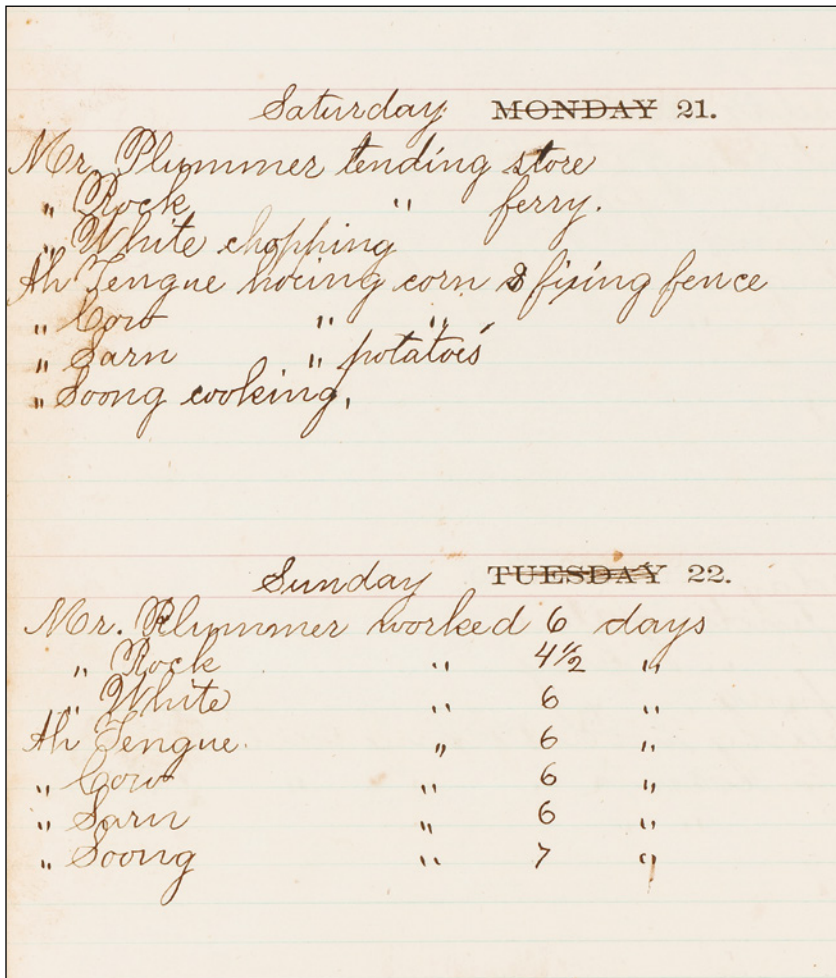 Saturday MONDAY 21.
Mr. Plummer tending store
" Rock " ferry.
" White chopping
Ah Tengue hoeing corn & fixing fence
" Cow " "
" Sarn " potatoes
" Soong cooking.
Sunday TUESDAY 22.
Mr. Plummer worked 6 days
" Rock " 4 1/2 "
" White " 6 "
Ah Tengue " 6 "
" Cow " 6 "
" Sarn " 6 "
" Soong " 7 "